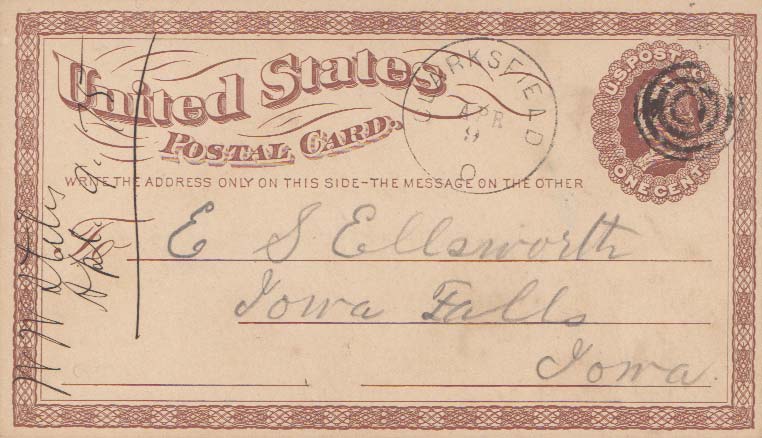 United States
POSTAL CARD.
WRITE THE ADDRESS ONLY ON THIS SIDE-THE MESSAGE ON THE OTHER
U.S. POSTAGE
ONE CENT
CLARKSFIEAD
APR
9
O
E S Ellsworth
Iowa Falls
Iowa.
W W Stiles
Apl. 9. 75